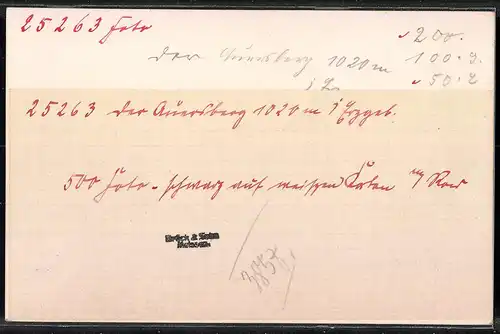 25263 Foto
200.
der Auersberg 1020 m
100.
i/
50.
25263 der Auersberg 1020 m i/Erzgeb.
500 Foto - schwarz auf weissen Karten
Brück & Sohn
Meissen.
3857